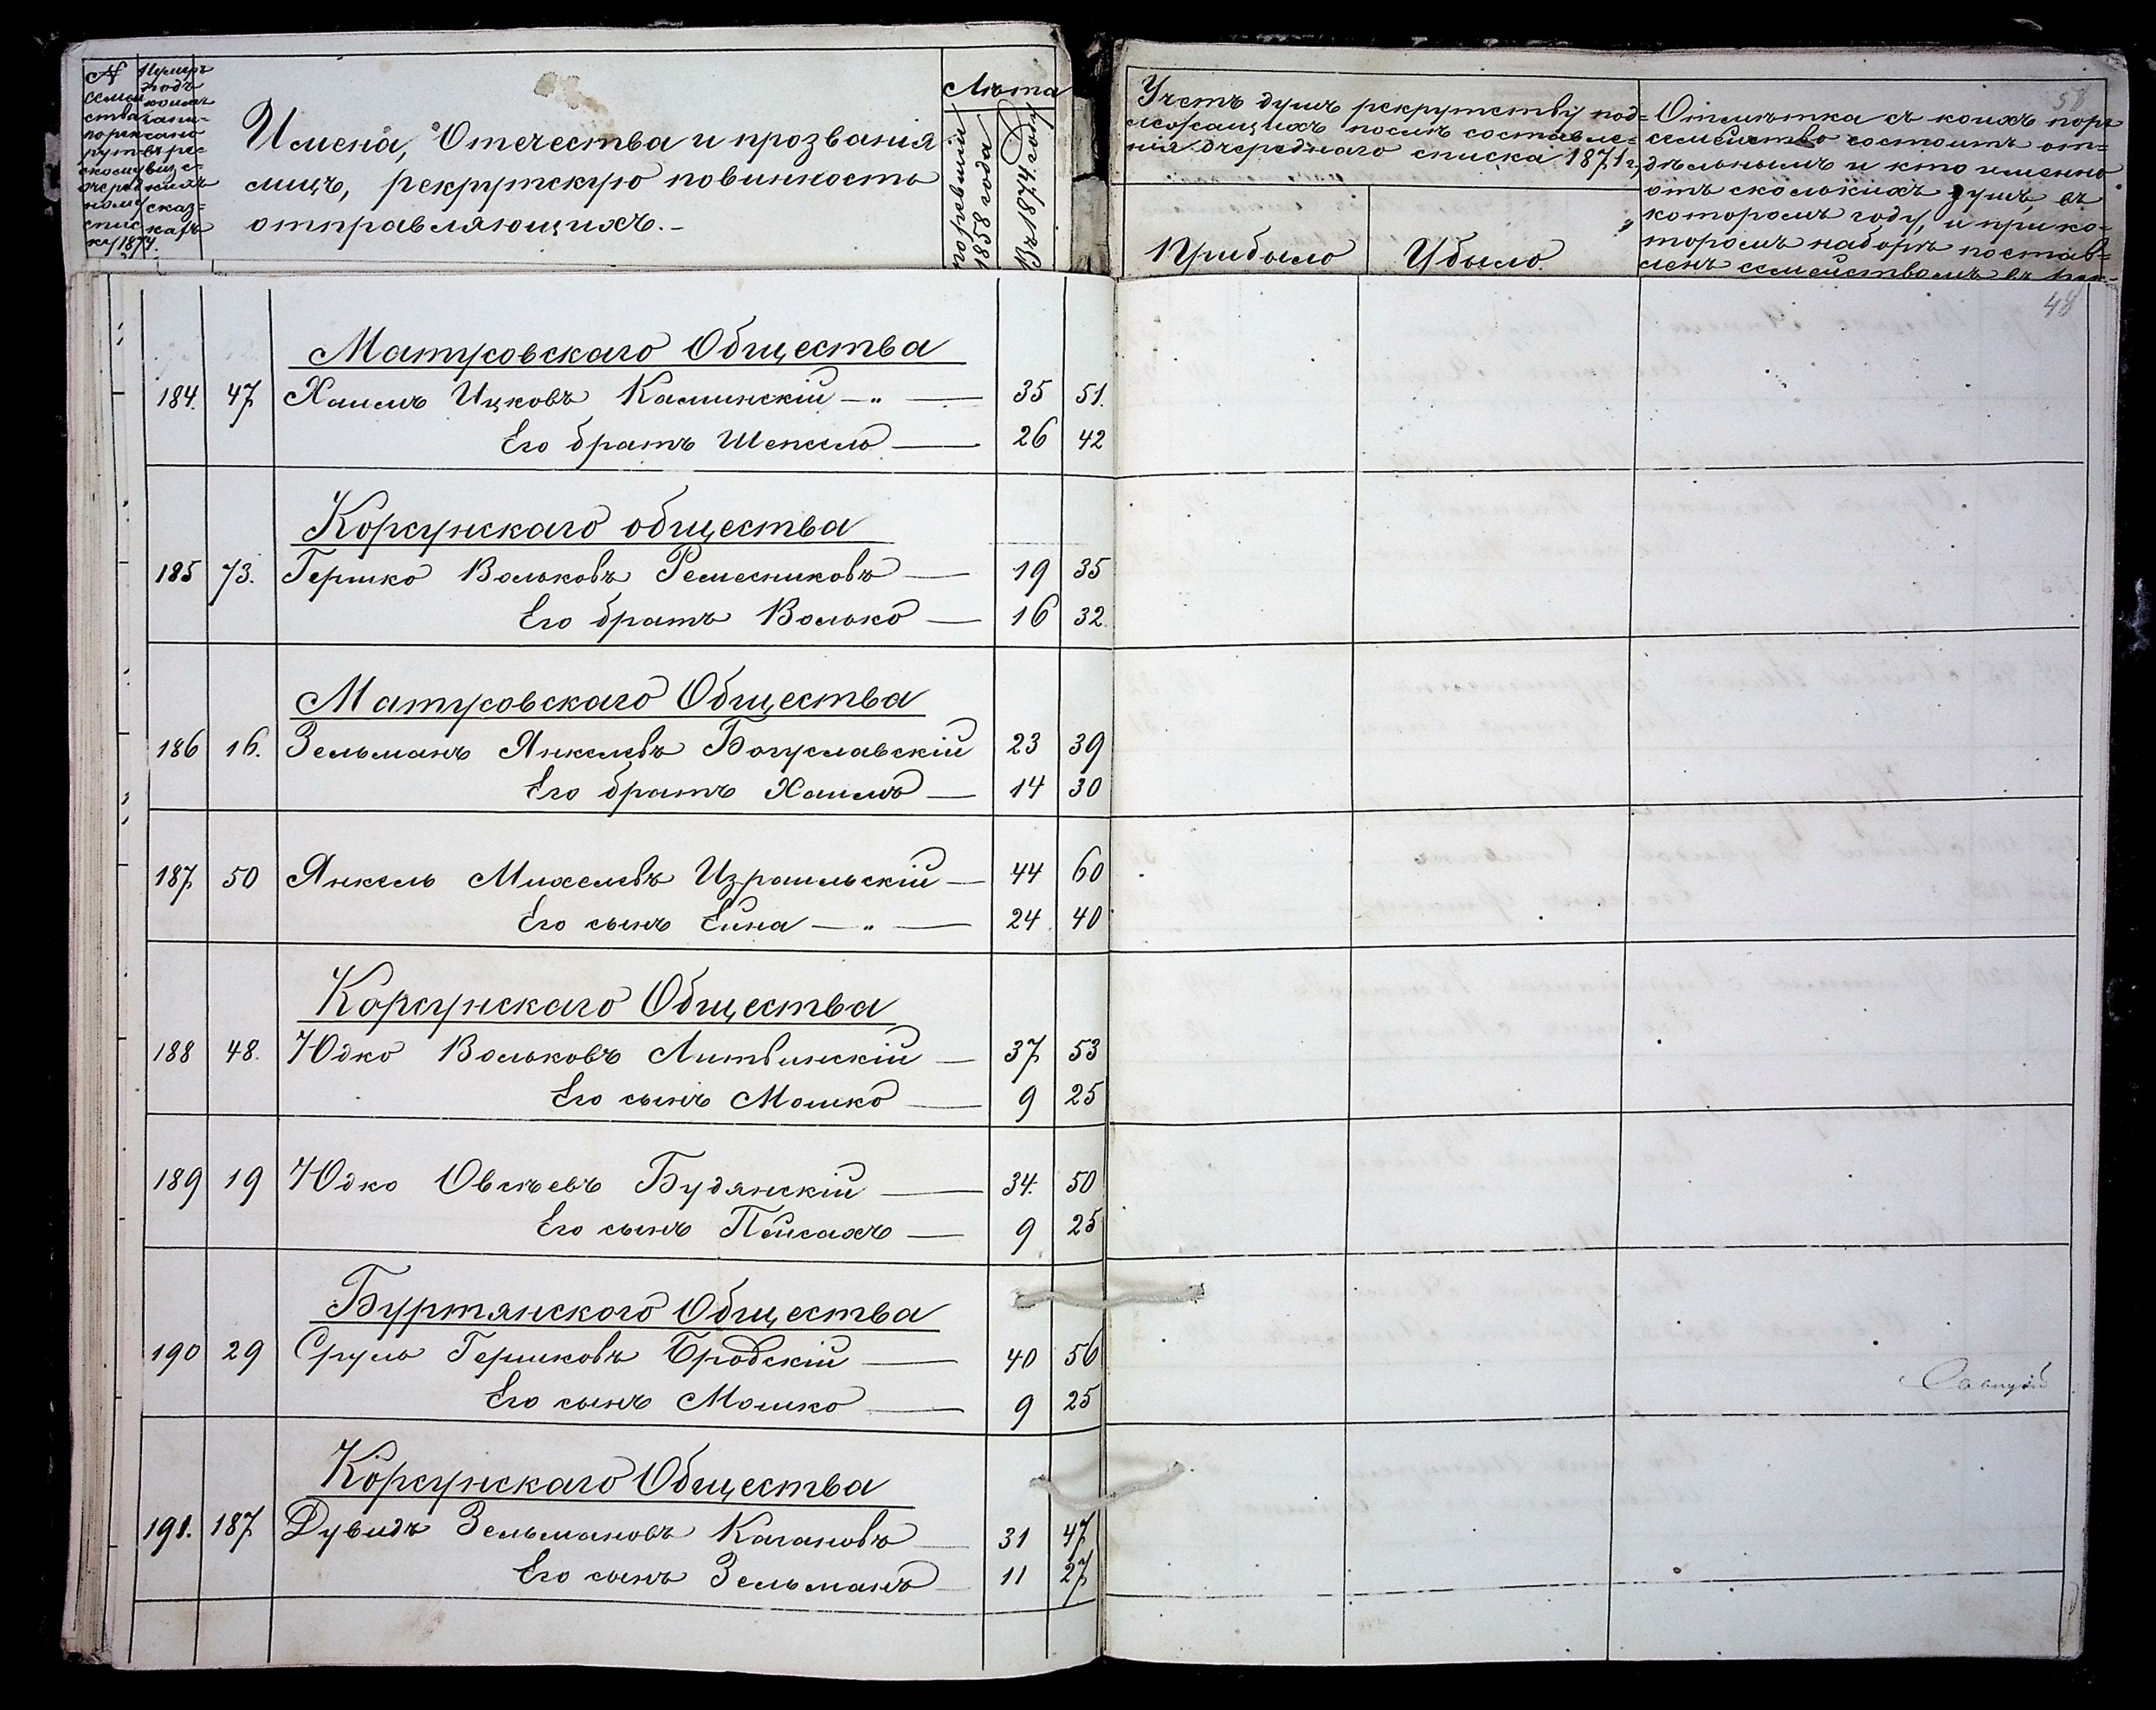 № семействъ по рекрутскому очередному списку 1874.
Нумеръ подъ коимъ записано въ ревизскихъ сказкахъ
Имена, Отечества и прозванія
лицъ, рекрутскую повинность
отправляющихъ. –
Лѣта
по ревизіи 1858 года
Въ 1874 году
Учетъ душъ рекрутству под=
лежащихъ послѣ составле=
нія очереднаго списка 1871 г.
Прибыло
Убыло.
58
Отмѣтка съ коихъ поръ
семейство состоитъ от=
дѣльнымъ и кто именно
отъ сколькихъ душъ, въ
которомъ году, и при ко=
торомъ наборѣ постав=
ленъ семействомъ въ
48
Матусовскаго Общества
184. 47 Хаимъ Ицковъ Каминскій —„— 35 51.
Его братъ Шепсель — 26 42
Корсунскаго общества
185 73. Гершко Вольковъ Ремесниковъ — 19 35
Его братъ Волько — 16 32.
Матусовскаго Общества
186 16. Зельманъ Янкелевъ Богуславскій 23 39
Его братъ Хаимъ — 14 30
187 50 Янкель Михелевъ Израильскій — 44 60
Его сынъ Ейна —„— 24 40
Корсунскаго Общества
188 48. Юдко Вольковъ Литвинскій — 37 53
Его сынъ Мошко — 9 25
189 19 Юдко Овсѣевъ Будянскій — 34. 50
Его сынъ Пейсахъ — 9 25
Буртянского Общества
190 29 Сруль Гершковъ Бродскій — 40 56
Его сынъ Мошко — 9 25
Корсунскаго Общества
191. 187 Дувидъ Зельмановъ Кагановъ — 31 47
Его сынъ Зельманъ — 11 27